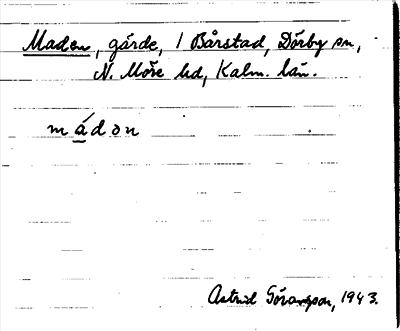 Maden, gärde, 1 Bårstad, Dörby sn,
N. Möre hd, Kalm. län.
mádon
Astrid Göransson, 1943.